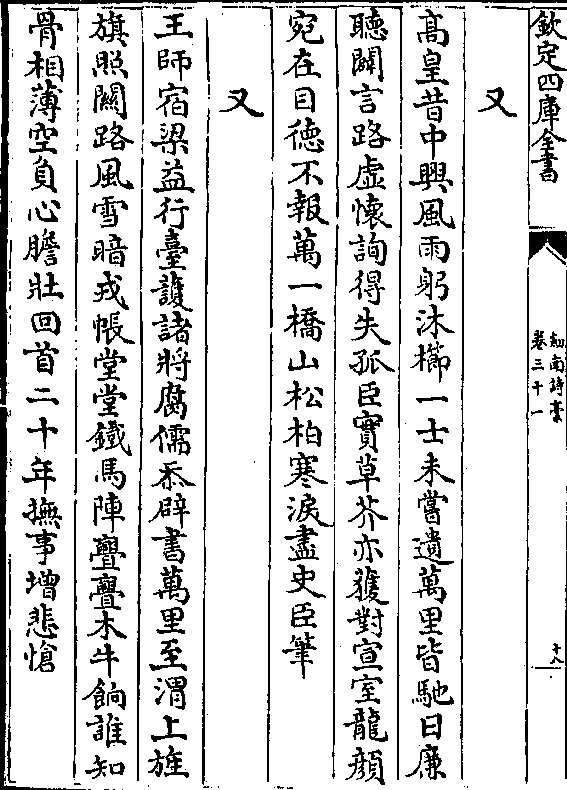 欽定四庫全書
劒南詩藁
卷三十一
十八
又
髙皇昔中興風雨躬沐櫛一士未嘗遺萬里皆馳日廉
聽闢言路虚懐詢得失孤臣實草芥亦獲對宣室龍顔
宛在目徳不報萬一橋山松栢寒淚盡史臣筆
又
王師宿梁益行臺護諸將腐儒忝辟書萬里至渭上旌
旗照關路風雪暗戎帳堂堂鐵馬陣亹亹木牛餉誰知
骨相薄空負心膽壯回首二十年撫事增悲愴